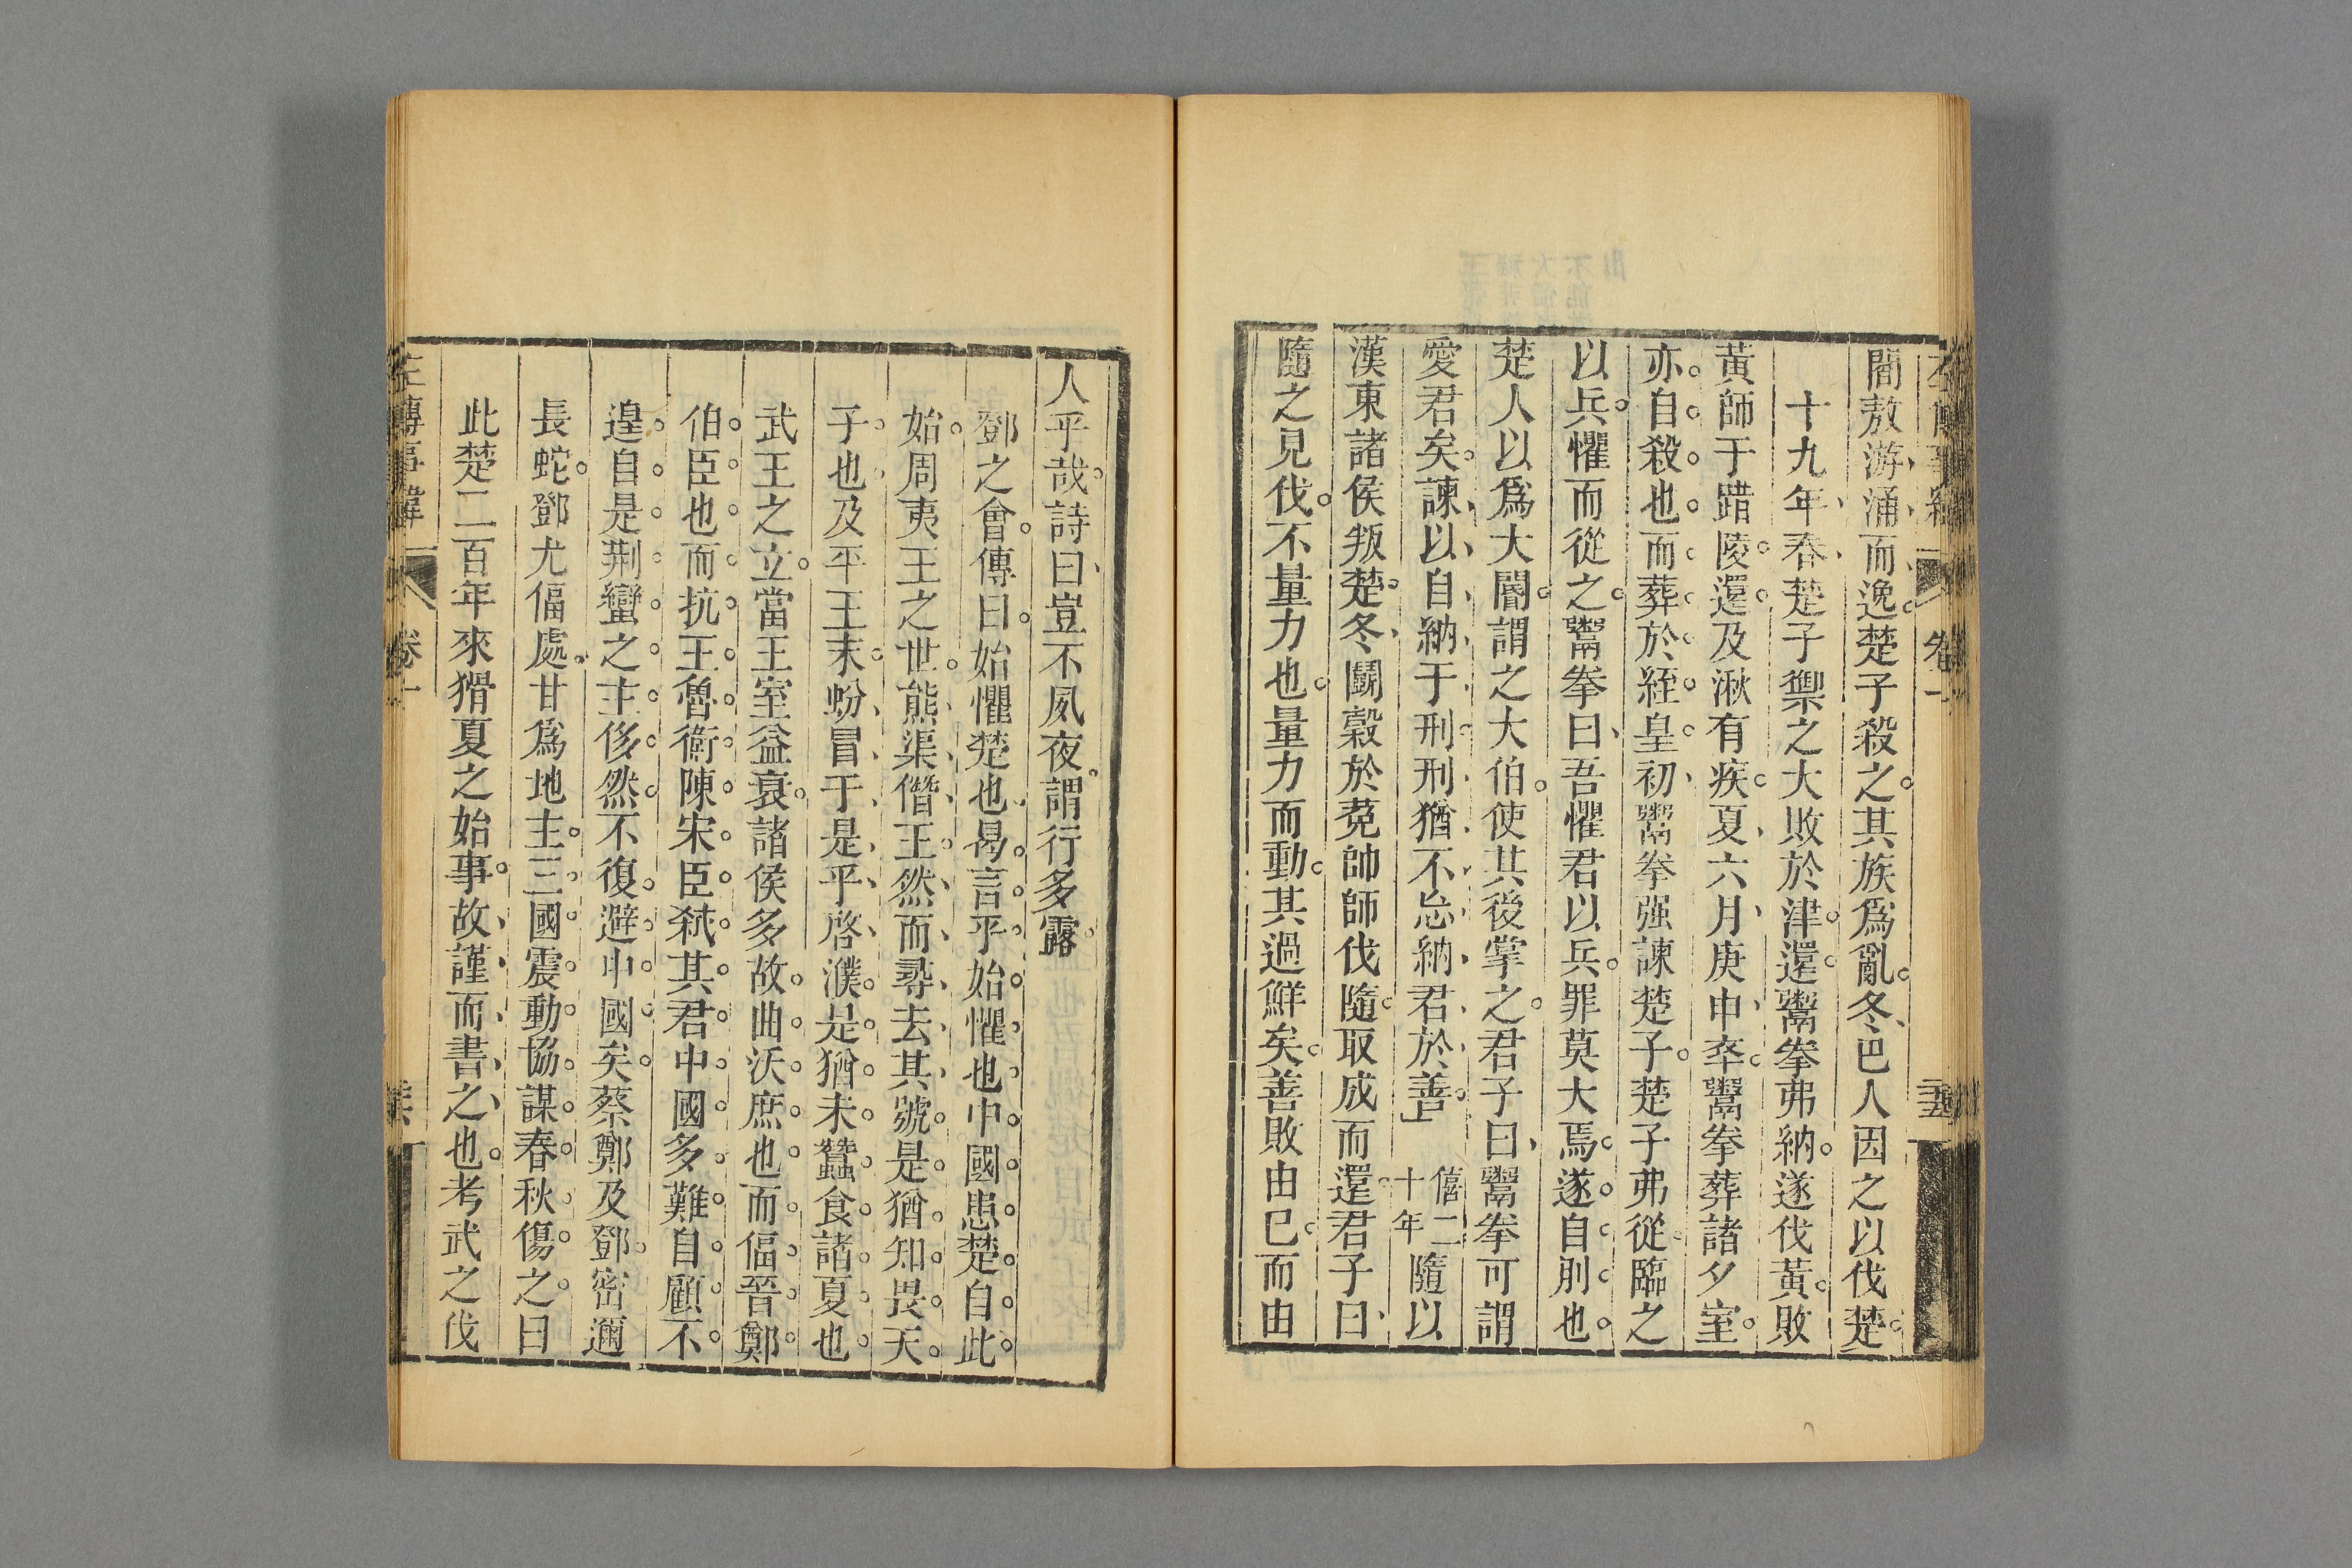 閻敖游涌而逸楚子殺之其族爲亂冬巴人因之以伐楚
十九年春楚子禦之大敗於津還鬻拳弗納遂伐黃敗
黃師于踖陵還及湫有疾夏六月庚申卒鬻拳葬諸夕室
亦自殺也而葬於絰皇初鬻拳强諫楚子楚子弗從臨之
以兵懼而從之鬻拳曰吾懼君以兵罪莫大焉遂自刖也
楚人以爲大閽謂之大伯使其後掌之君子曰鬻拳可謂
愛君矣諫以自納于刑刑猶不忘納君於善 僖二十年 隨以
漢東諸侯叛楚冬鬭穀於菟帥師伐隨取成而還君子曰
隨之見伐不量力也量力而動其過鮮矣善敗由已而由
人乎哉詩曰豈不夙夜謂行多露
鄧之會傳曰始懼楚也曷言乎始懼也中國患楚自此
始周夷王之世熊渠僭王然而尋去其號是猶知畏天
子也及平王末蚡冒于是乎啓濮是猶未蠶食諸夏也
武王之立當王室益衰諸侯多故曲沃庶也而偪晉鄭
伯臣也而抗王魯衛陳宋臣弒其君中國多難自顧不
遑自是荆蠻之主侈然不復避中國矣蔡鄭及鄧密邇
長蛇鄧尤偪處甘爲地主三國震動協謀春秋傷之曰
此楚二百年來猾夏之始事故謹而書之也考武之伐
左傳事緯 卷一